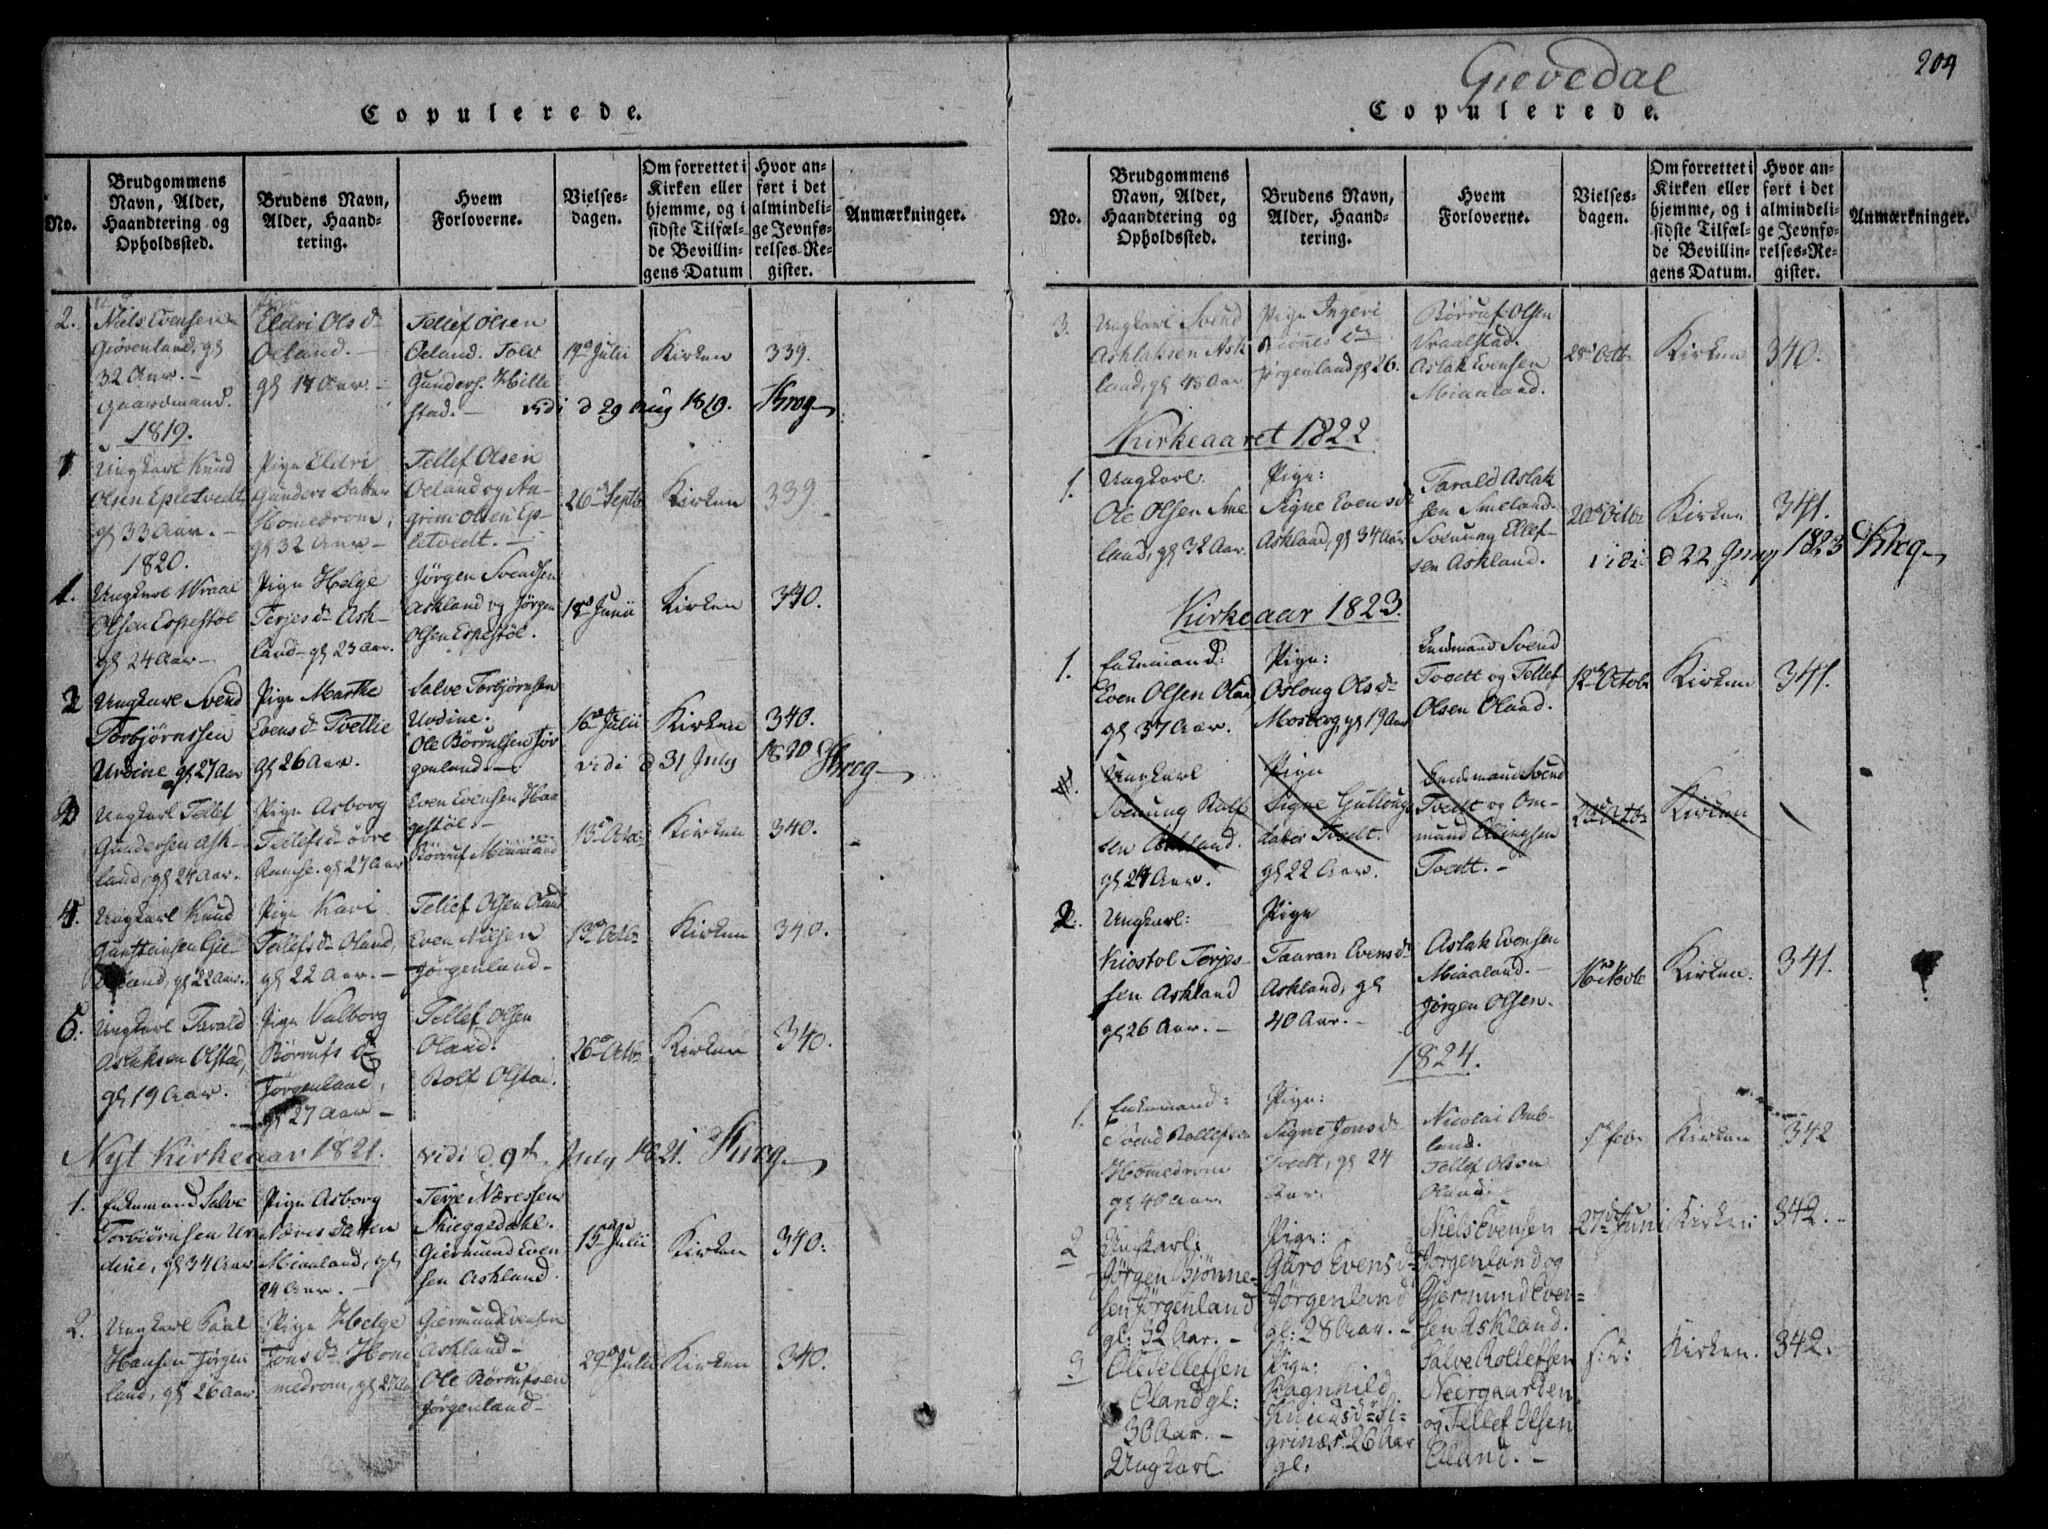 Copulerede.
No.
Brudgommens
Navn, Alder,
Haandtering og
Opholdssted.
Brudens Navn,
Alder, Haand-
tering.
Hvem
Forloverne.
Vielses-
dagen.
Om forrettet i
Kirken eller
hjemme, og i
sidste Tilfæl-
de Bevillin-
gens Datum
Hvor an-
ført i det
almindeli-
ge Jevnfø-
relses-Re-
gister.
Anmærkninger.
2.
Niels Evensen
Giövenland, gl
32 Aar. -
Gaardmand.
Eldri Ols d
Oeland. -
gl 18 Aar. -
Tellef Olsen
Oeland. Tolv
Gunders. Hille
stad. -
19d Julii
Kirken
339.
vidi d 29 Aug 1819. Krog
1819.
1
Ungkarl Knud
Olsen Epletvedt,
gl 33 Aar. -
Pige Eldri
Gunders Datter
Homedrom,
gl 32 Aar -
Tellef Olsen
Oeland og An-
grim Olsen Ep-
letvedt. -
26d Septb
Kirken
339.
1820.
1.
Ungkarl Wraal
Olsen Espestöl
gl 24 Aar -
Pige Helge
Terjes d Ask-
land - gl 23 Aar.
Jörgen Svendsen
Askland og Jörgen
Olsen Espestöl.
18d Junii
Kirken
340.
2
Ungkarl Svend
Torbjörnssen
Urdine gl 27 Aar
Pige Marthe
Evens d Tveitlie
gl 26 Aar.
Salve Torbjörnsen
Urdine.
Ole Börrulfsen Jör
genland. -
16d Julii
Kirken
340.
vidi d 31 July 1820 Krog
3
Ungkarl Tellef
Gundersen Ask-
land, gl 24 Aar.
Pige Asborg
Tellefs d övre
Ramse. gl 27 Aar
Even Evensen Haa
gestöl. -
Börruf Miaaland
13d Octb
Kirken
340.
4.
Ungkarl Knud
Gunsteinsen Gie-
land, gl 22 Aar.
Pige Kari
Tellefs d Oland,
gl 22 Aar. -
Tellef Olsen Oland
Even Nilsen
Jörgenland -
13d Octb
Kirken
340.
5.
Ungkarl Tarald
Aslaksen Olstad,
gl 19 Aar.
Pige Valborg
Börrufs d
Jörgenland,
gl 27 Aar -
Tellef Olsen
Oland.
Rolf Olstad.
26d Octb
Kirken
340.
Nyt Kirkeaar 1821.
vidi d 9 July 1821. Krog
1.
Enkemand Salve
Torbiörnsen Ur
dine, gl 34 Aar
Pige Asborg
Næres Datter
Miaaland, gl
24 Aar. -
Terje Næressen
Skieggedahl.
Giermund Even
sen Askland.
15d Julii
Kirken
340.
2.
Ungkarl Paal
Hansen Jörgen
land, gl 26 Aar.
Pige Helge
Jons d Home
medrom, gl 27 Aar
Giermund Evensen
Askland -
Ole Börrufsen
Jörgenland -
29d Julii
Kirken
340.
Gievedal
204
Copulerede.
No.
Brudgommens
Navn, Alder,
Haandtering og
Opholdssted.
Brudens Navn,
Alder, Haand-
tering.
Hvem
Forloverne.
Vielses-
dagen.
Om forrettet i
Kirken eller
hjemme, og i
sidste Tilfæl-
de Bevillin-
gens Datum.
Hvor an-
ført i det
almindeli-
ge Jevnfø-
relses-Re-
gister.
Anmærkninger.
3.
Ungkarl Svend
Aslaksen Ask
land, gl 48 Aar.
Pige Ingeri
Biönnes d
Jörgenland gl 26.
Börruf Olsen
Vraalstad.
Aslak Evensen
Miaaland.
28d Octb
Kirken
340.
Kirkeaaret 1822.
1.
Ungkarl.
Ole Olsen Sme
land, gl 32 Aar.
Pige:
Signe Evens d
Askland, gl 34 Aar
Tarald Aslak
sen Smeland.
Svenung Ellef-
sen Askland.
20d Octb
Kirken
341.
vidi d 22 Jnuy 1823 Krog
Kirkeaar 1823.
1.
Enkemand:
Even Olsen Oland
gl 37 Aar.
Pige:
Oslaug Ols d
Mosberg, gl 19 Aar
Lensmand Svend
Tvedt og Tellef
Olsen Oland.
12d Octob
Kirken
341.
Ungkarl
Svenung Rolf
sen Askland.
gl 24 Aar.
Pige
Signe Gullougs
datter Tvedt.
gl 22 Aar.
Lensmand Svend
Tvedt og Om-
mund
Tvedt. -
Octb
Kirken
2.
Ungkarl:
Kiostol Terjes-
sen Askland
gl 26 Aar. -
Pige
Tauran Evens d
Askland, gl
40 Aar. -
Aslak Evensen
Miaaland. -
Jörgen Olsen.
16d Novb
Kirken.
341.
1824.
1.
Enkemand:
Svend Rollefsen
Homedrom
gl 40 Aar.
Pige:
Signe Jons d
Tvedt, gl 24
Aar.
Nicolai Omb-
land.
Tellef Olsen
Oland.
5d Feb.
Kirken
342
2
Ungkarl:
Jörgen Bjönne-
sen Jörgenland
gl: 32 Aar. -
Pige:
Guro Evens d
Jörgenland
gl: 28 Aar. -
Niels Evensen
Jörgenland og
Gjermund Even-
sen Askland.
27d Juni
Kirken:
342. -
3
Ole Tellefsen
Oland gl:
30 Aar. -
Ungkarl
Pige:
Ragnhild
Knuds d Li-
grinæs. 26 Aar
gl:
Salve Rollefsen
Neergaarden
og Tellef Olsen
Oland. -
s: D:
Kirken.
342.